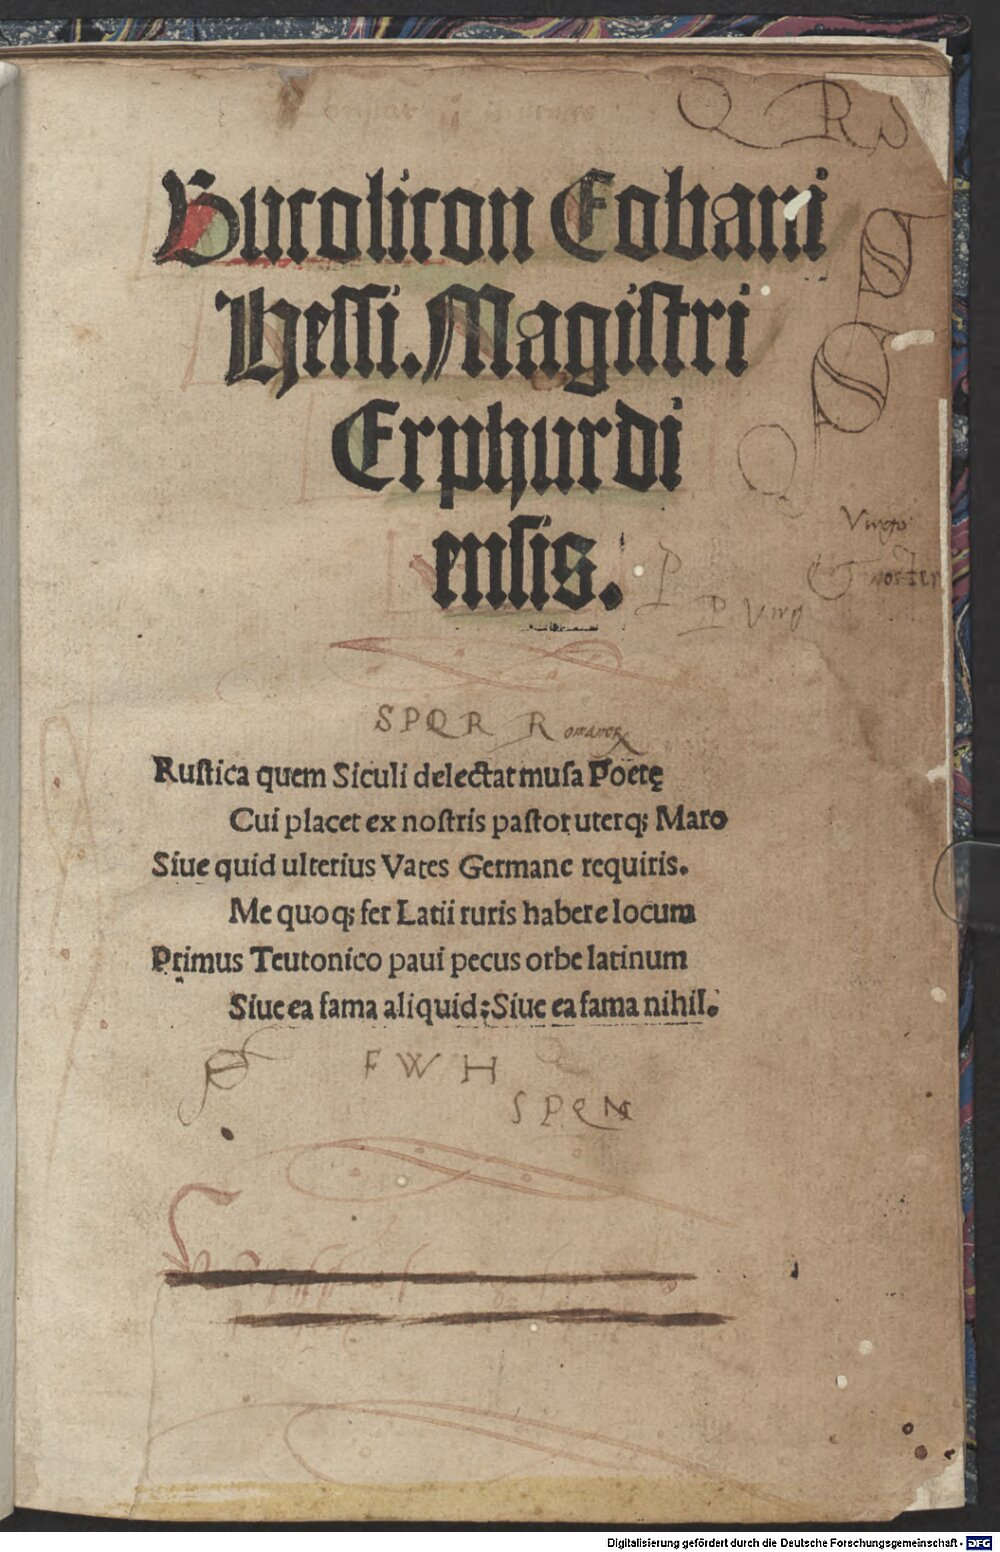 Q R S
Bucolicon Eobani
Hessi. Magistri
Erphurdi
ensis.
Virgo
noster
P
P Virg
SPQR
Rustica quem Siculi delectat musa Poetę
Cui placet ex nostris pastor uterq; Maro
Siue quid ulterius Vates Germane requiris.
Me quoq; fer Latii ruris habere locum
Primus Teutonico paui pecus orbe latinum
Siue ea fama aliquid; Siue ea fama nihil.
F W H
Digitalisierung gefördert durch die Deutsche Forschungsgemeinschaft - DFG